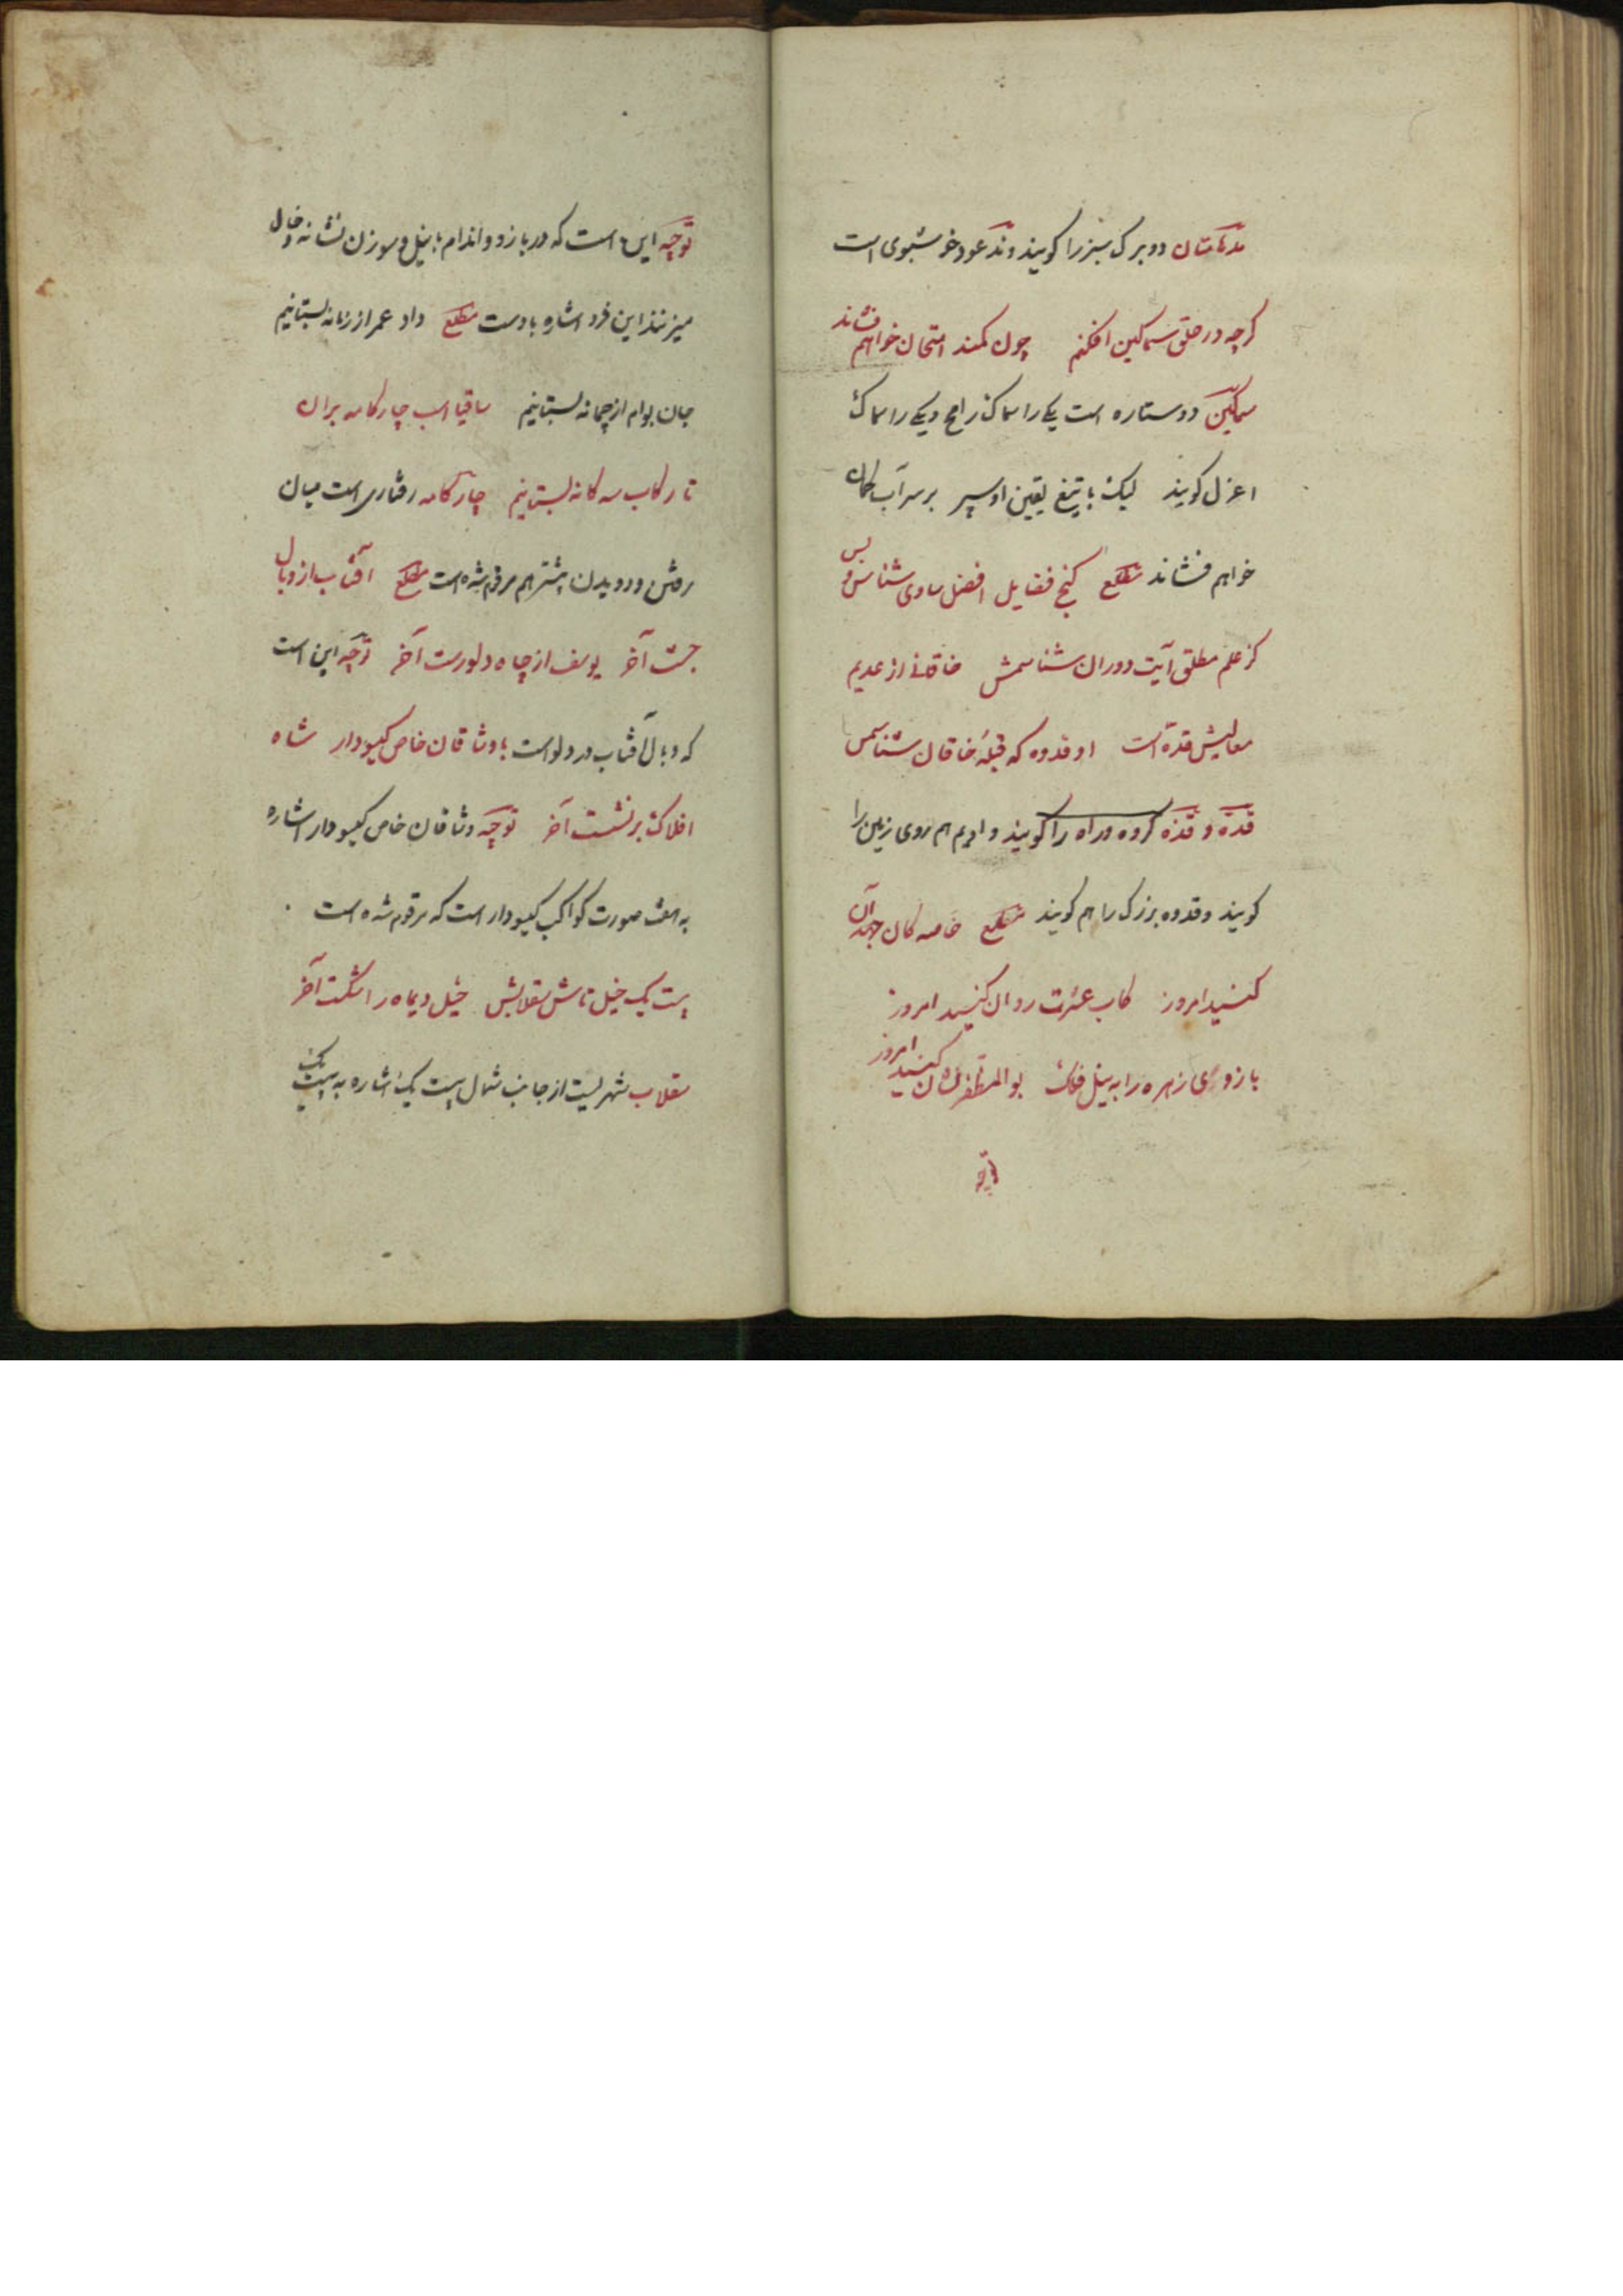 مدهامتان دو برک سبز را کویند وند عود خوشبوی است
کرچه در حلق سماکین افکنم چون کمند امتحان خواهم فشاند
سماکین دو ستاره است یکے را سماک رامح ویکے را سماک
اعزل کویند لیک با تیغ یقین او سپر بر سر آب کمان
خواهم فشاند مطلع کنج فضایل افضل ساوی شناس وبس
کز علم مطلق آیت دوران شناسمش خاقانے از ادیم
معالیش قدهٔ است او قدوه که قبلهٔ خاقان شناسمس
قده و قذه کروه و راه را کویند و ادیم هم روی زمین را
کویند و قدوه بزرک را هم کویند مطلع خاصه کان جهد آن
کنسید امروز کاب عشرت روان کنسید امروز
بازوی زهره را به نیل فلک بوالمظفر نشان کنسید امروز
توجه
توجه این است که در بازو و اندام با نیل و سوزن نشانه و خال
میزنند این فرد اشاره باوست مطلع داد عمر از زمانه بستانیم
جان بوام از چمانه بستانیم ساقیا اسب چار کامه بران
تا رکاب سه کانه بستانیم چار کامه رفتاری است میان
رفتن و دویدن پیشتر هم مرقوم شده است مطلع آفتاب از وبال
جست آخر یوسف از چاه دلورست آخر توجه این است
که وبال آفتاب در دلو است با وثاقان خاص کیسودار شاه
افلاک بر نشست آخر توجه وثاقان خاص کیسودار اشاره
به هفت صورت کواکب کیسودار است که مرقوم شده است
بیست یک خیل تاش سقلابش خیل دیماه را شکست آخر
سقلاب شهریست از جانب شمال بیست یک اشاره به بیست یک